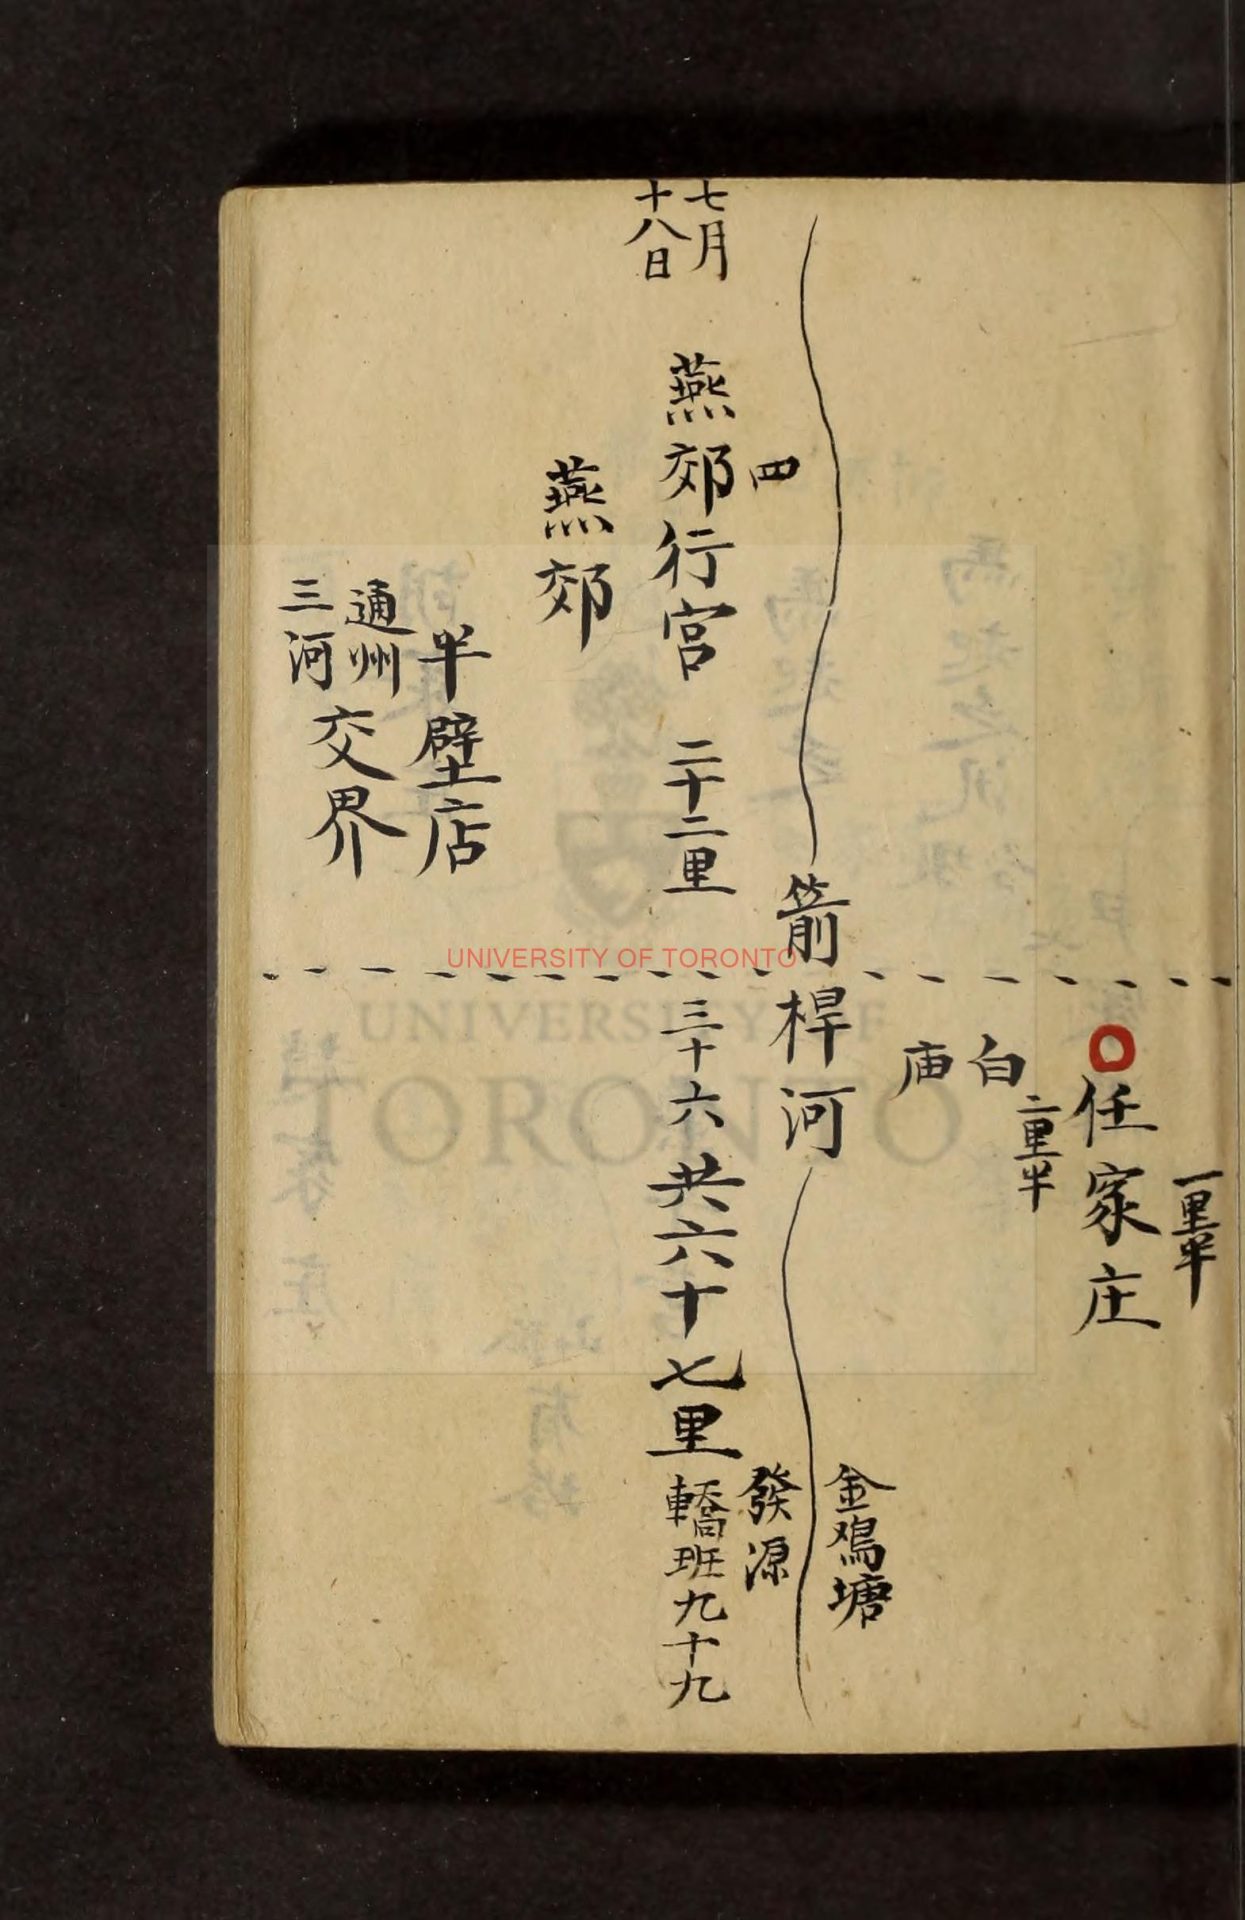 一里半
任家庄
二里半
白
庙
金鳮塘
箭桿河
發源
四
七月
十八日
燕郊行宮 二十二里 三十六 共六十七里 轎班九十九
燕郊
半壁店
通州
三河
交界
UNIVERSITY OF TORONTO
UNIVERSITY OF
TORONTO